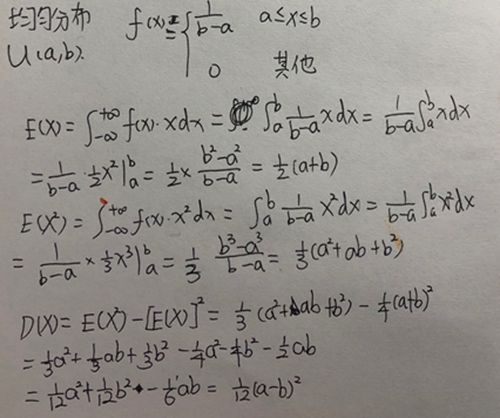 均匀分布 f(x)= { 1/(b-a) a≤x≤b
U(a,b). 0 其他
E(X)=∫_{-∞}^{+∞} f(x)·xdx = ∫_a^b 1/(b-a) xdx = 1/(b-a) ∫_a^b xdx
= 1/(b-a) · 1/2 x²|_a^b = 1/2 × (b²-a²)/(b-a) = 1/2(a+b)
E(X²)=∫_{-∞}^{+∞} f(x)·x²dx = ∫_a^b 1/(b-a) x²dx = 1/(b-a) ∫_a^b x²dx
= 1/(b-a) × 1/3 x³|_a^b = 1/3 (b³-a³)/(b-a) = 1/3(a²+ab+b²)
D(X)= E(X²)-[E(X)]² = 1/3 (a²+ab+b²) - 1/4(a+b)²
= 1/3a²+1/3ab+1/3b² -1/4a²-1/4b²-1/2ab
= 1/12a²+1/12b² -1/6ab = 1/12(a-b)²